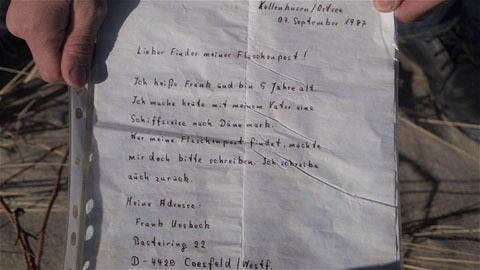 Kellenhüsen/Ostsee
07. September 1987
Lieber Finder meiner Flaschenpost!
Ich heiße Frank und bin 5 Jahre alt.
Ich mache heüte mit meinem Vater eine
Schiffsreise nach Dänemark.
Wer meine Flaschenpost findet, möchte
mir doch bitte schreiben. Ich schreibe
aüch zurück.
Meine Adresse:
Frank Uesbeck
Basteiring 22
D-4420 Coesfeld/Westf.